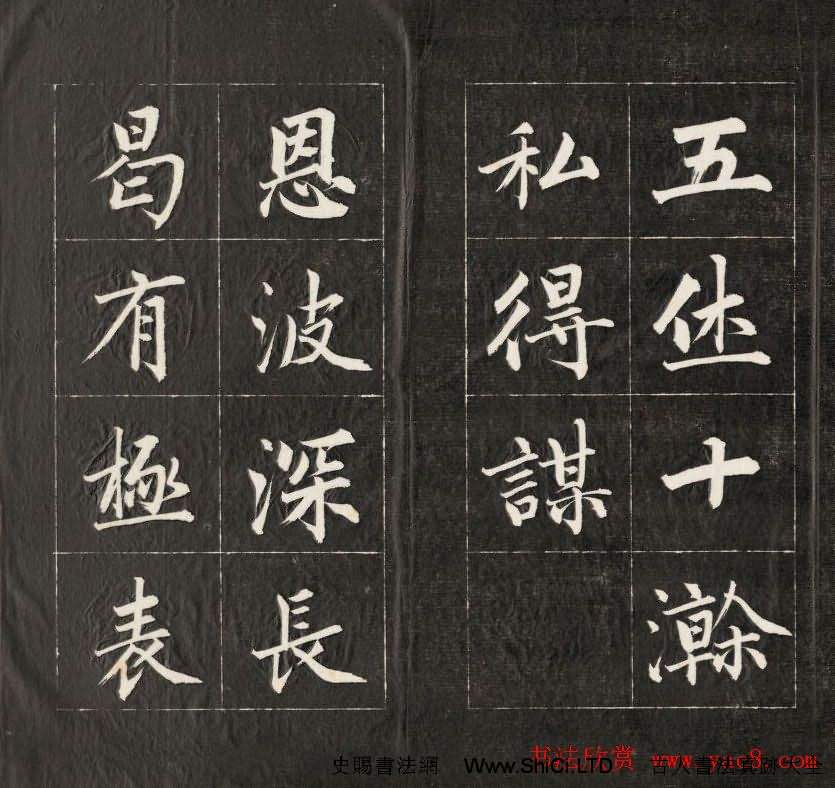 五休十澣
私得謀
恩波深長
曷有極表
书法欣赏 www.yac8.com
史賜書法網 Www.ShiCi.LTD 古人書法真跡大全